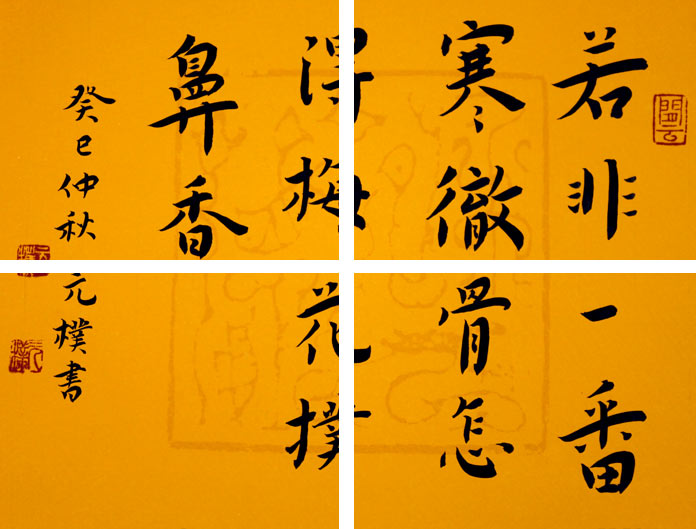 若非一番
寒徹骨怎
得梅花撲
鼻香
癸巳仲秋元樸書